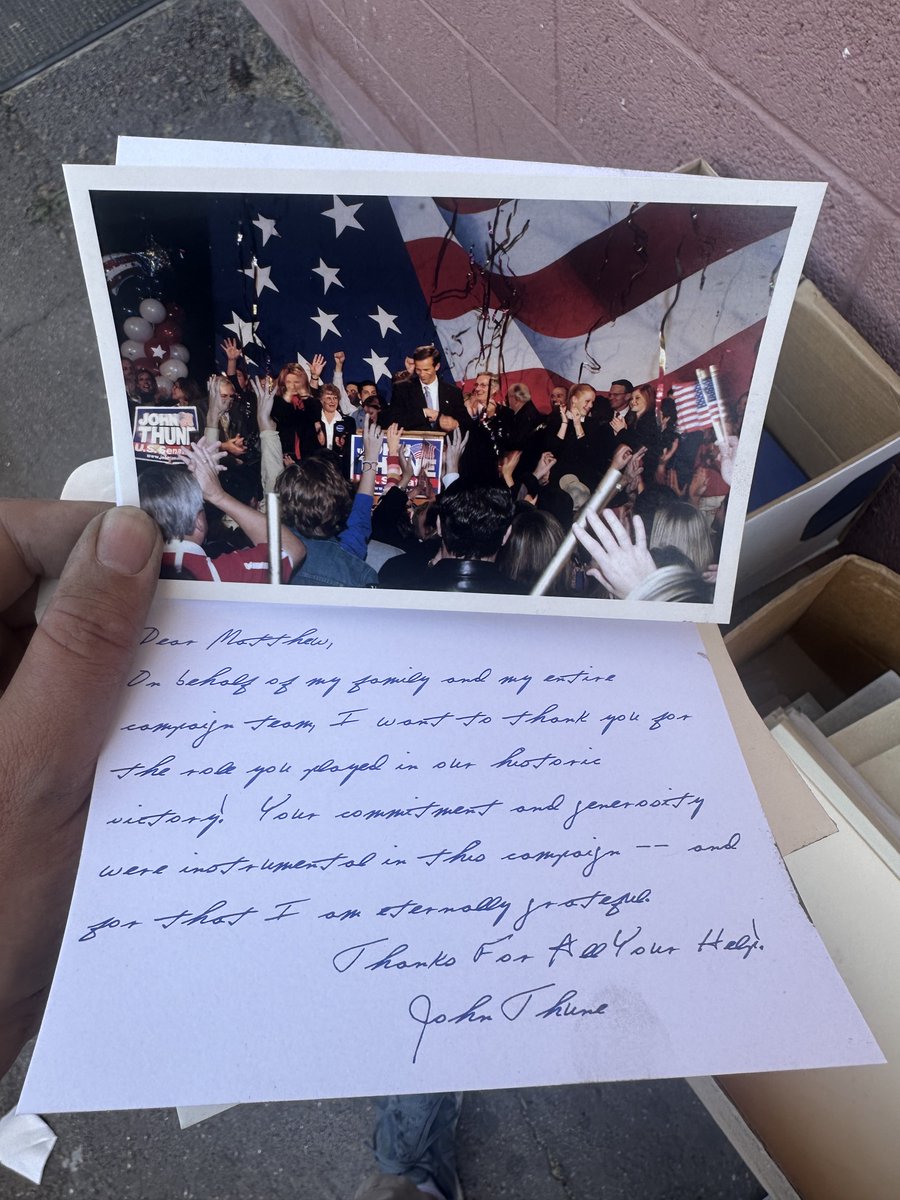 JOHN
THUNE
U.S. Senate
THUNE
Dear Matthew,
On behalf of my family and my entire
campaign team, I want to thank you for
the role you played in our historic
victory! Your commitment and generosity
were instrumental in this campaign -- and
for that I am eternally grateful.
Thanks For All Your Help!
John Thune